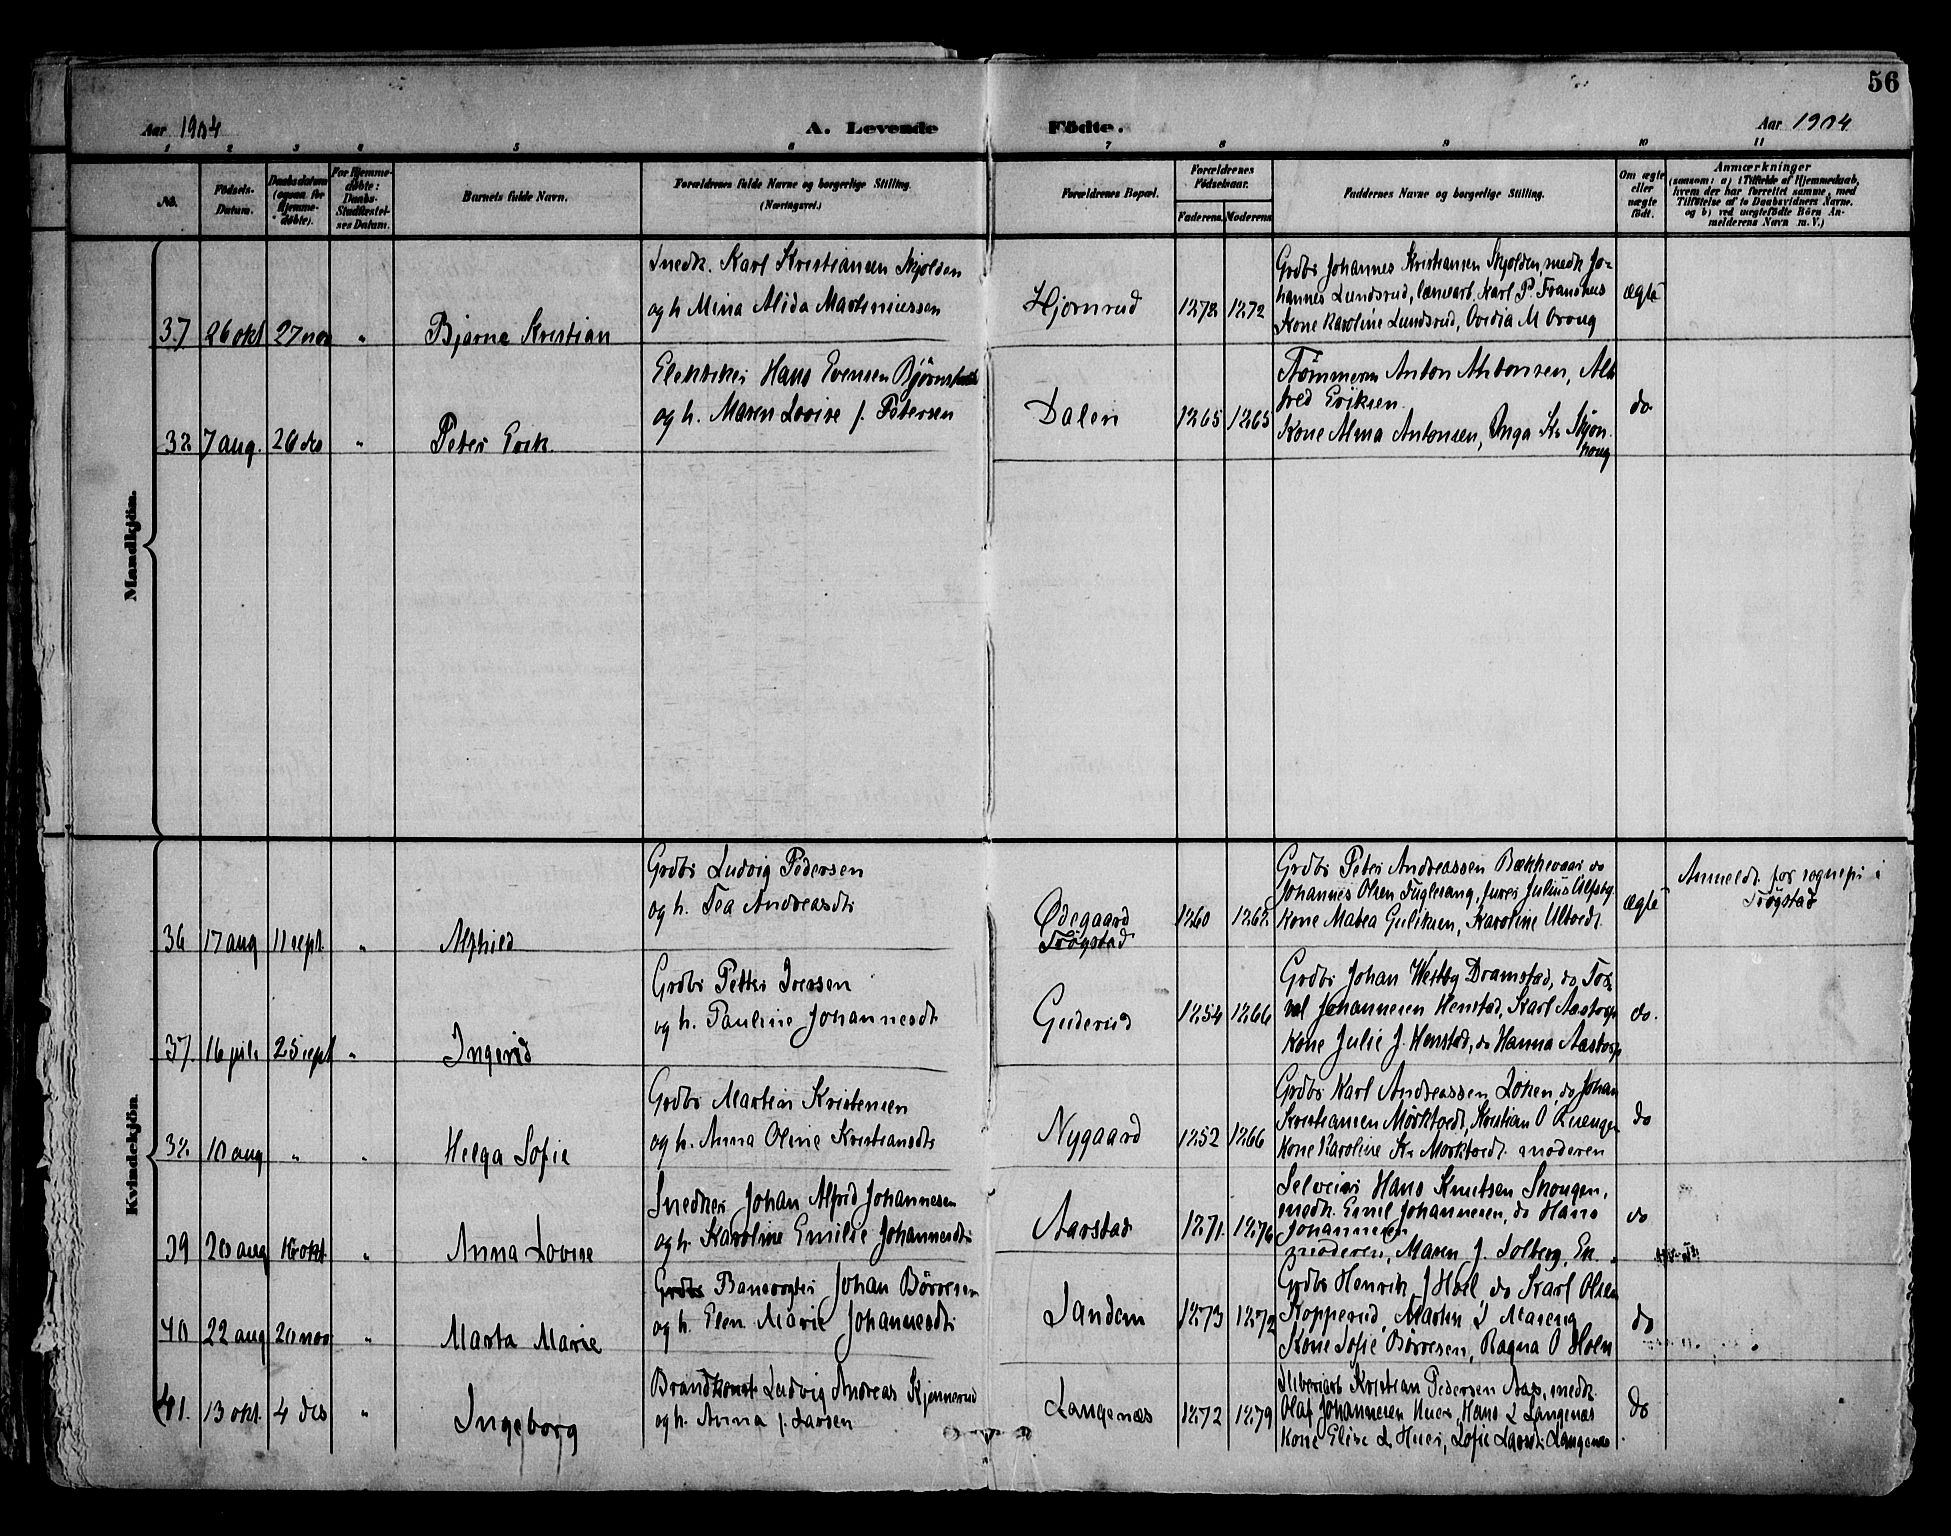 56
Aar 1904
A. Levende
Födte.
Aar 1904
1 2 3 4 5 6 7 8 9 10 11
No.
Födsels-
Datum.
Daabsdatum
(ogsaa for
Hjemme-
döbte).
For Hjemme-
döbte:
Daabs-
Stadfæstel-
ses Datum.
Barnets fulde Navn.
Forældrenes fulde Navne og borgerlige Stilling.
(Næringsvei.)
Forældrenes Bopæl.
Forældrenes
Födselsaar.
Faderens.
Moderens
Faddernes Navne og borgerlige Stilling.
Om ægte
eller
uægte
födt.
Anmærkninger
(saasom: a) i Tilfælde af Hjemmedaab,
hvem der har forrettet samme, med
Tilföielse af to Daabsvidners Navne,
og b) ved uægtefödte Börn An-
melderens Navn m. V.)
Mandkjön.
37 26 okt 27 nov " Bjarne Kristian
Snedk. Karl Kristiansen Skjolden
og h. Mina Alida Martiniussen
Hjørnrud
1878 1872
Grdbr Johannes Kristiansen Skjolden, medh Jo-
hannes Lundsrud, Karl P.
Kone Karoline Lundsrud, Ovidia M
ægte
38 7 aug. 26 de " Peter Erik.
Elektriker Hans Evensen
og h. Maren Lovise f. Petersen
Dalen
1865 1865
Tømmerm Anton Antonsen, Al-
fred Eriksen.
Kone Alma Antonsen, Inga Kr Skjøn-
houg
do
Kvindekjön.
36 17 aug 11 sept. " Alfhild
Grdbr Ludvig Pedersen
og h. Tea Andreasdtr
Ødegaard
Trøgstad
1860 1862
Grdbr Peter Andreassen do
Johannes Olsen Fuglesang,
Kone Matea Guliksen, Karoline
ægte
Anmeldt for sognepr i
Trøgstad
37. 16 juli 25 sept " Ingerid
Grdbr Petter Iversen
og h. Pauline Johannesdt.
Guderud
1854 1866
Grdbr Johan Westby Dramstad, do Tor-
val Johannesen Henstad, Karl Aastorp
Kone Julie J. Henstad, do Hanna Aastorp
do.
38. 10 aug " " Helga Sofie
Grdbr Martin Kristensen
og h. Anna Oline Kristiansdtr
Nygaard
1852 1866
Grdbr Karl Andreassen Løken, do Johan
Kristiansen Mørktvedt, Kristian O
Kone Karoline Kr. Mørktvedt. moderen
do
39 20 aug 16 okt. " Anna Lovise
Snedker Johan Alfrid Johannesen
og h. Karoline Emilie Johannesdtr
Aarstad
1871. 1876
Selveier Hans Knutsen Skougen,
medh. Emil Johannesen, do Hans
Johannesen
moderen, Maren J. Solberg, En
do
40 22 aug 20 nov " Marta Marie
Grdbr Banevogter Johan Børresen
og h. Elen Marie Johannesdtr
Sandem
1873 1872
Grdbr Henrik J Hoel do Karl Olsen
Kopperud, Martin
Kone Sofie Børresen, Ragna O Holm
do
41. 13 okt. 4 des " Ingeborg
Ludvig Andreas Kjennerud
og h. Anna f. Larsen
Langenæs
1872 1879
Kristian Pedersen Aas, medh.
Olaf Johannesen Huer, Hans L Langenæs
Kone Elise L Huer, Sofie Larsdtr Langenæs
do